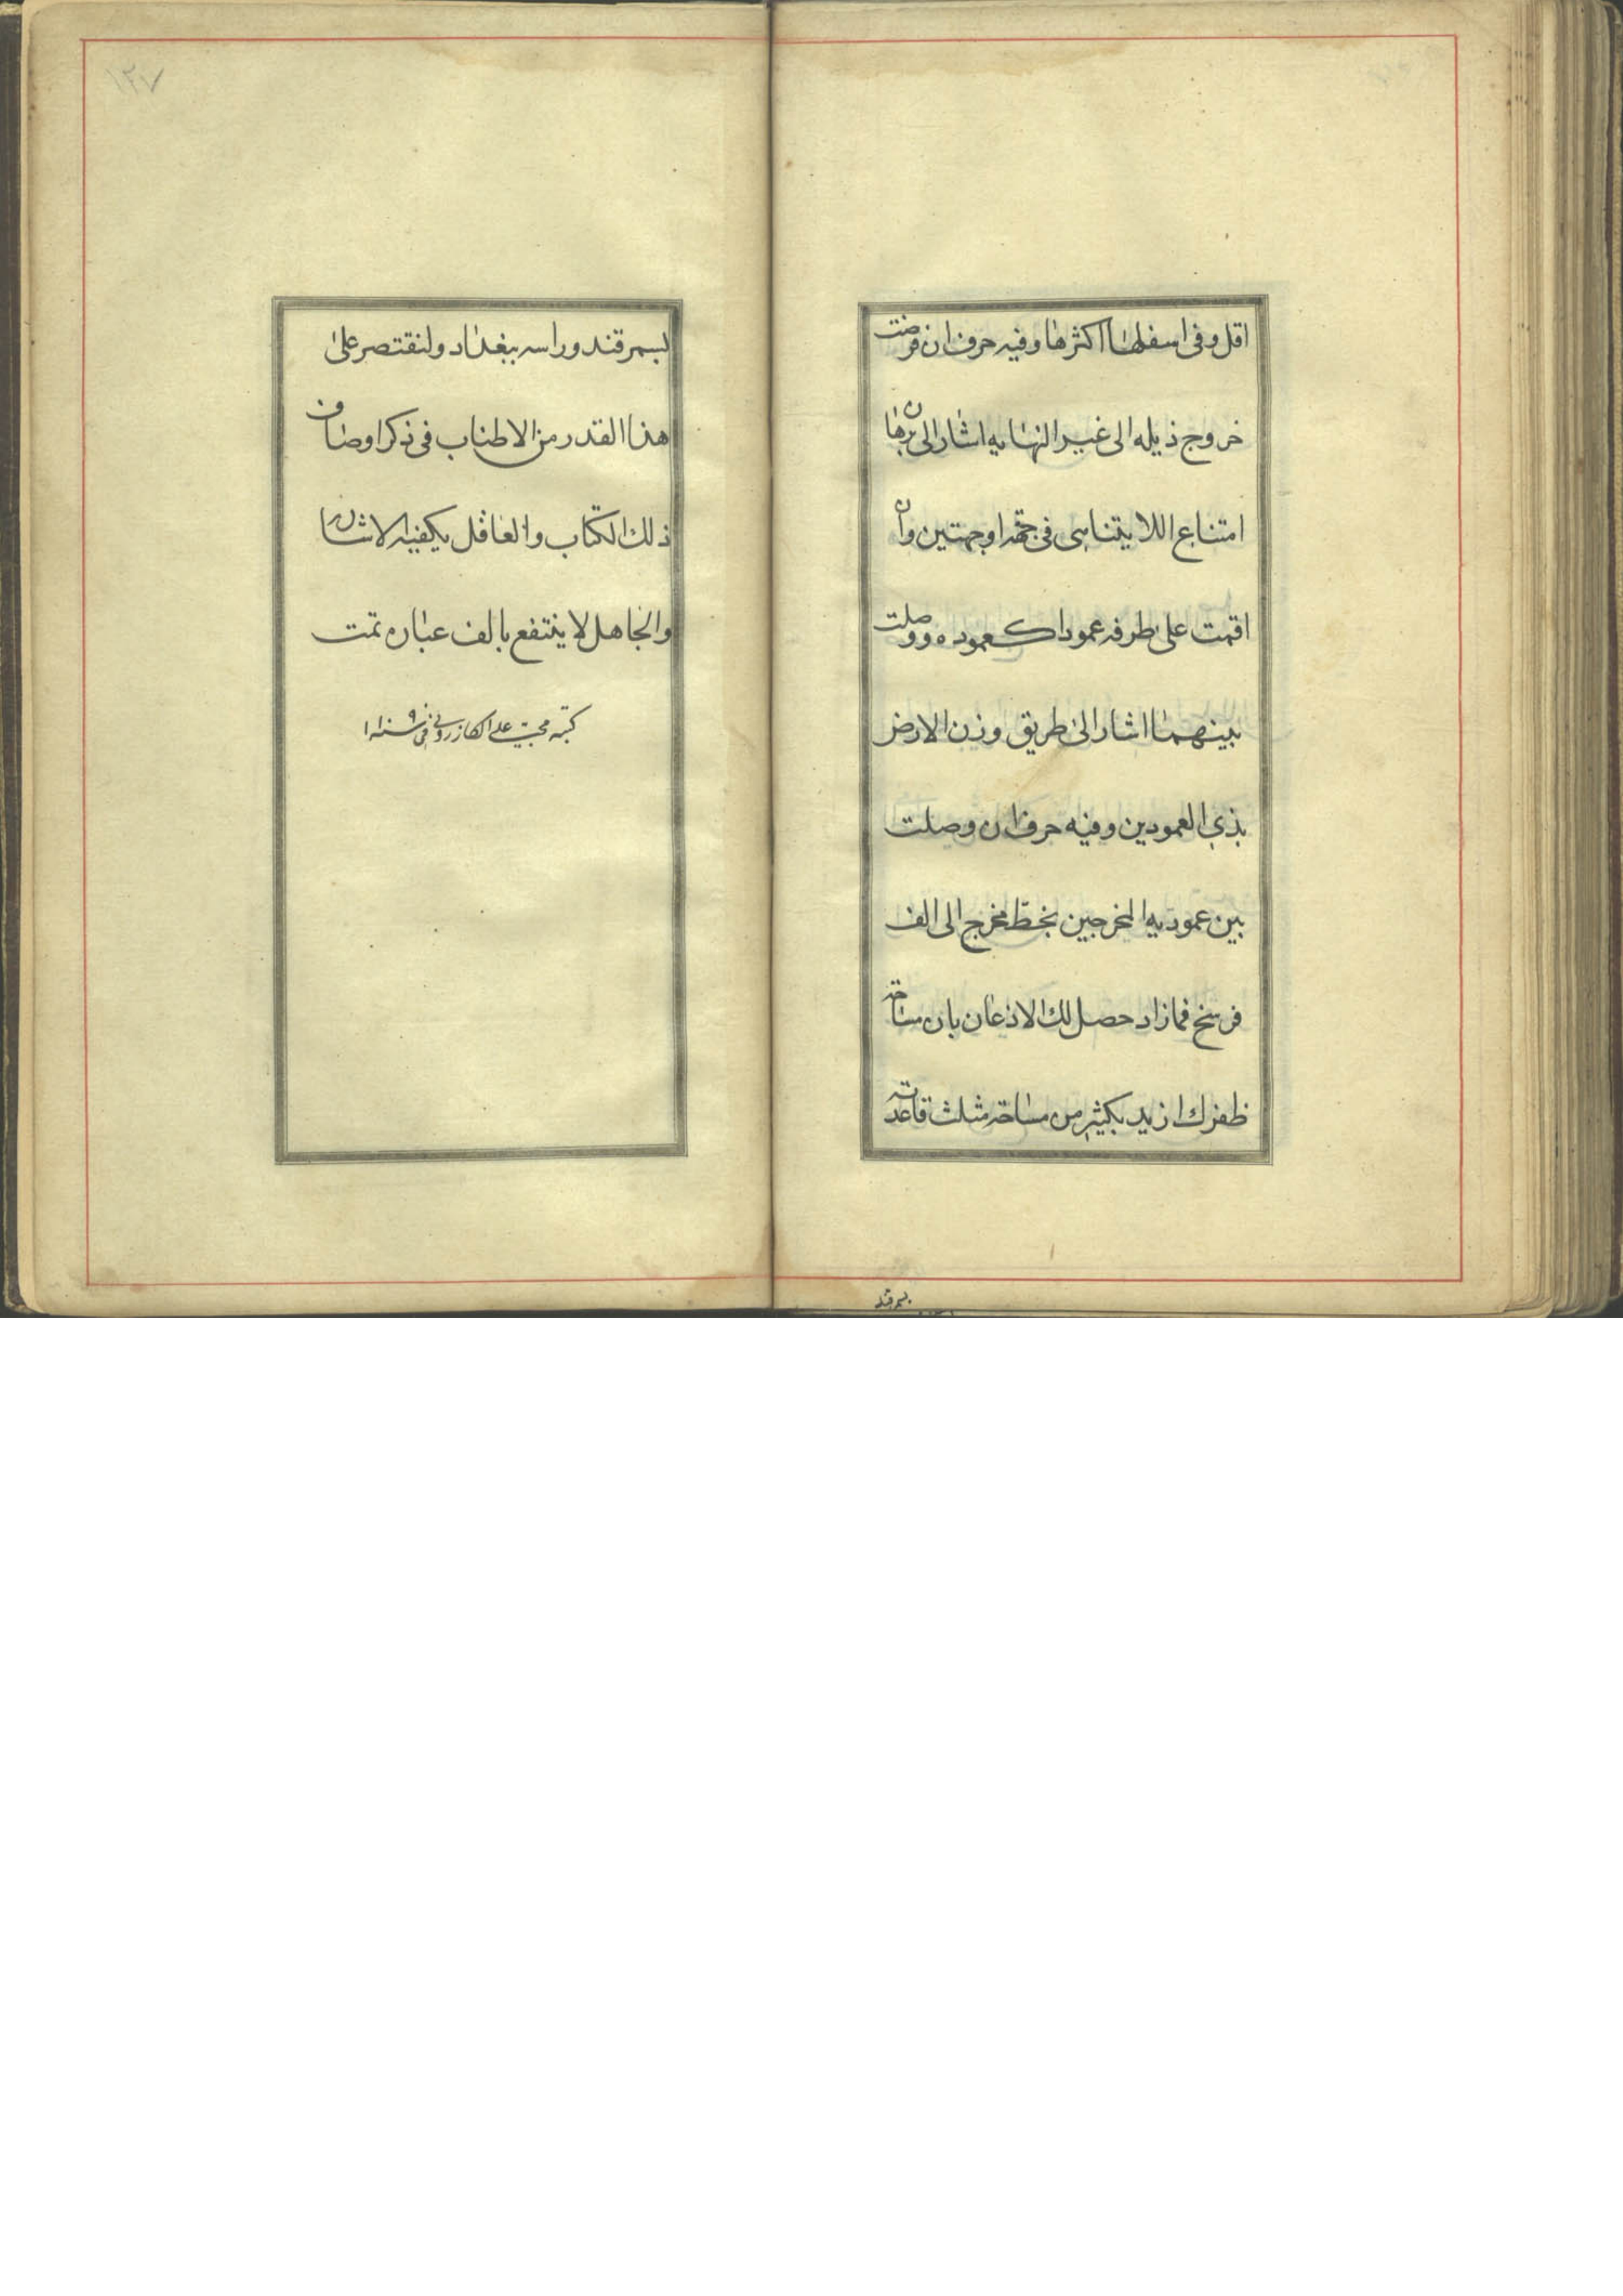 اقل وفى اسفلها اكثرها وفيه حرف ان فرضت
خروج ذيله الى غير النهايه اشار الى برهان
امتناع اللا يتناهى فى جهه او جهتين وان
اقمت على طرفه عمودا كعموده ووصلت
بينهما اشار الى طريق وزن الارض
بذى العمودين وفيه حرف ان وصلت
بين عموديه المخرجين بخط مخرج الى الف
فرسخ فمازاد حصل لك الاذعان بان مساحة
ظفرك ازيد بكثير من مساحة مثلث قاعدته
بسمرقند
١٢٧
بسمرقند وراسه ببغداد ولنقتصر على
هذا القدر من الاطناب فى ذكر اوصاف
ذلك الكتاب والعاقل يكفيه الاشاره
والجاهل لا ينتفع بالف عباره تمت
كتبه محب على الكازرونى فى سنه